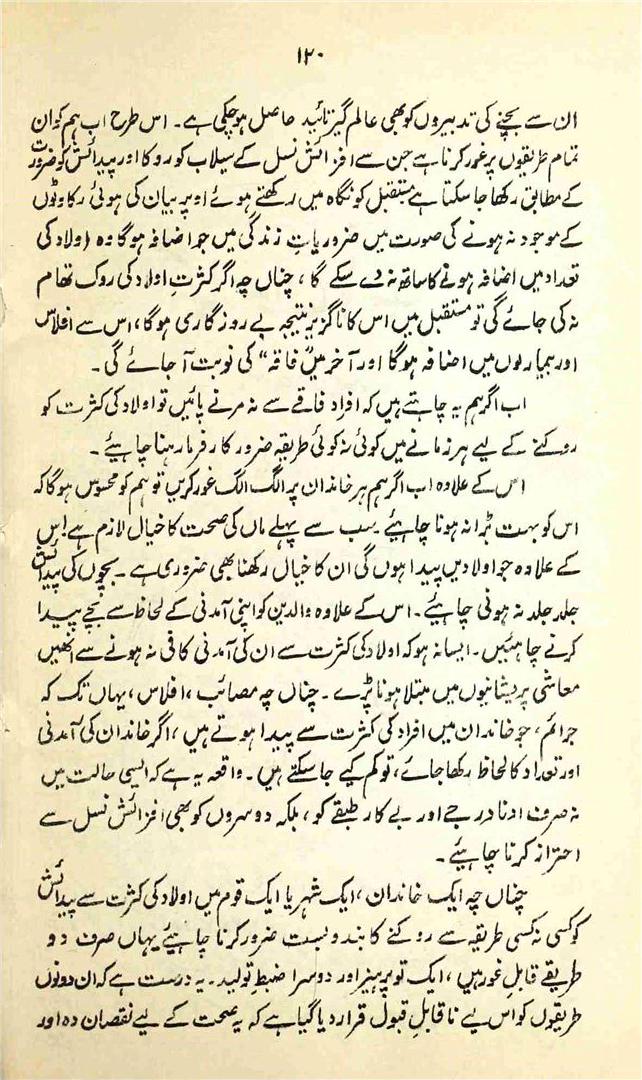 ۱۲۰
ان سے بچنے کی تدبیروں کو بھی عالم گیر تائید حاصل ہو چکی ہے۔ اس طرح اب ہم کو ان
تمام طریقوں پر غور کرنا ہے جن سے افزائش نسل کے سیلاب کو روکا اور پیدائش کو ضرورت
کے مطابق رکھا جا سکتا ہے مستقبل کو نگاہ میں رکھتے ہوئے اوپر بیان کی ہوئی رکاوٹوں
کے موجود نہ ہونے کی صورت میں ضروریاتِ زندگی میں جو اضافہ ہوگا وہ اولاد کی
تعداد میں اضافہ ہونے کا ساتھ نہ دے سکے گا، چناں چہ اگر کثرتِ اولاد کی روک تھام
نہ کی جائے گی تو مستقبل میں اس کا ناگزیر نتیجہ بے روزگاری ہوگا، اس سے افلاس
اور بیماریوں میں اضافہ ہوگا اور آخر میں "فاقہ" کی نوبت آ جائے گی۔
اب اگر ہم یہ چاہتے ہیں کہ افراد فاقے سے نہ مرنے پائیں تو اولاد کی کثرت کو
روکنے کے لیے ہر زمانے میں کوئی نہ کوئی طریقہ ضرور کارفرما رہنا چاہیے۔
اس کے علاوہ اب اگر ہم ہر خاندان پر الگ الگ غور کریں تو ہم کو محسوس ہوگا کہ
اس کو بہت بڑا نہ ہونا چاہیے سب سے پہلے ماں کی صحت کا خیال لازم ہے! اس
کے علاوہ جو اولادیں پیدا ہوں گی ان کا خیال رکھنا بھی ضروری ہے۔ بچوں کی پیدائش
جلد جلد نہ ہونی چاہیے۔ اس کے علاوہ والدین کو اپنی آمدنی کے لحاظ سے بچے پیدا
کرنے چاہئیں۔ ایسا نہ ہو کہ اولاد کی کثرت سے ان کی آمدنی کافی نہ ہونے سے انھیں
معاشی پریشانیوں میں مبتلا ہونا پڑے۔ چناں چہ مصائب، افلاس، یہاں تک کہ
جرائم، جو خاندان میں افراد کی کثرت سے پیدا ہوتے ہیں، اگر خاندان کی آمدنی
اور تعداد کا لحاظ رکھا جائے، تو کم کیے جا سکتے ہیں۔ واقعہ یہ ہے کہ ایسی حالت میں
نہ صرف ادنا درجے اور بے کار طبقے کو، بلکہ دوسروں کو بھی افزائش نسل سے
احتراز کرنا چاہیے۔
چناں چہ ایک خاندان، ایک شہر یا ایک قوم میں اولاد کی کثرت سے پیدائش
کو کسی نہ کسی طریقہ سے روکنے کا بندوبست ضرور کرنا چاہیے یہاں صرف دو
طریقے قابلِ غور ہیں، ایک تو پرہیز اور دوسرا ضبطِ تولید۔ یہ درست ہے کہ ان دونوں
طریقوں کو اس لیے ناقابلِ قبول قرار دیا گیا ہے کہ یہ صحت کے لیے نقصان دہ اور